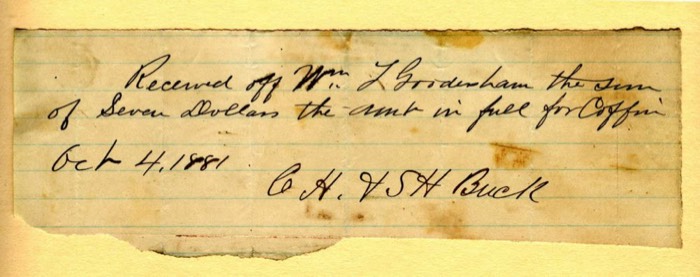 Received off Wm L Goodenham the sum
of Seven Dollars the amt in full for Coffin
Oct 4, 1881
C H. & S H Buck